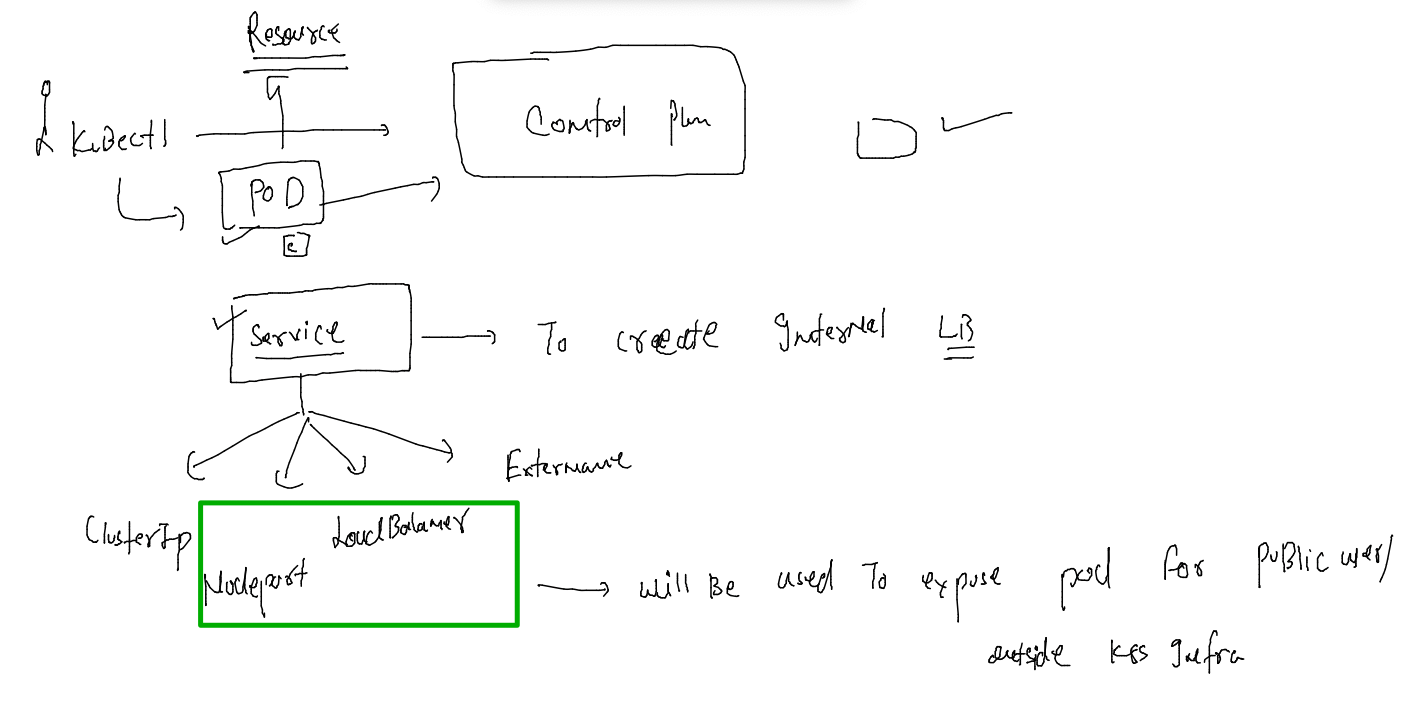 Resource
KuBectl
Control plan
POD
c
Service
To create Internal LB
Extername
ClusterIp
LoadBalancer
Nodeport
will Be used To expose pod for puBlic user/
outside K8s Infra